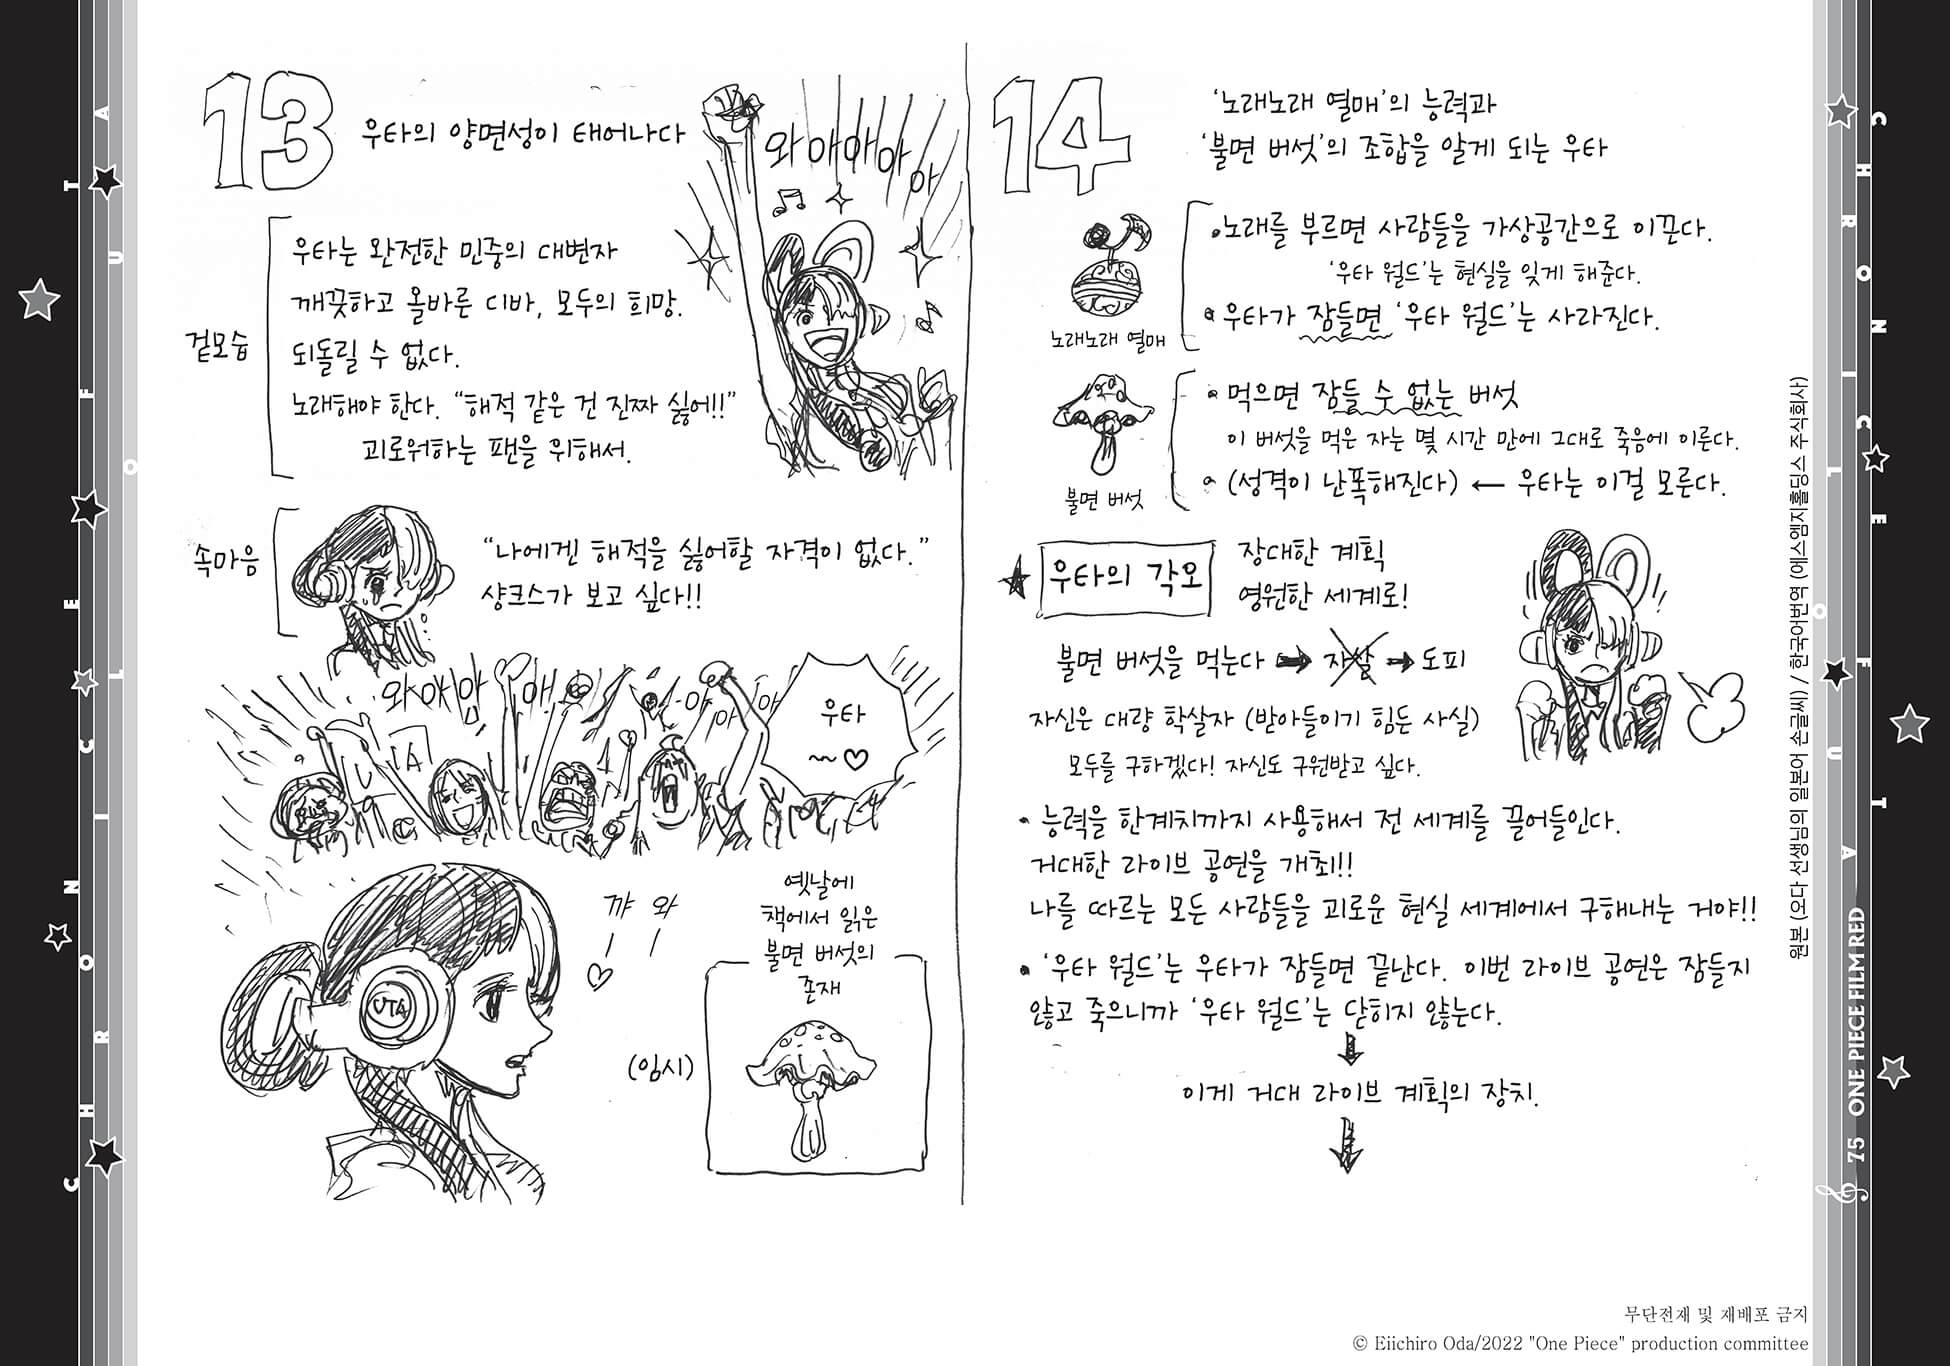 13
우타의 양면성이 태어나다
와아아아아
겉모습
우타는 완전한 민중의 대변자
깨끗하고 올바른 디바, 모두의 희망.
되돌릴 수 없다.
노래해야 한다. "해적 같은 건 진짜 싫어!!"
괴로워하는 팬을 위해서.
속마음
"나에겐 해적을 싫어할 자격이 없다."
샹크스가 보고 싶다!!
우타
~♡
UTA
꺄 와
옛날에
책에서 읽은
불면 버섯의
존재
(임시)
14
'노래노래 열매'의 능력과
'불면 버섯'의 조합을 알게 되는 우타
노래노래 열매
•노래를 부르면 사람들을 가상공간으로 이끈다.
'우타 월드'는 현실을 잊게 해준다.
•우타가 잠들면 '우타 월드'는 사라진다.
불면 버섯
•먹으면 잠들 수 없는 버섯
이 버섯을 먹은 자는 몇 시간 만에 그대로 죽음에 이른다.
•(성격이 난폭해진다) ← 우타는 이걸 모른다.
★ 우타의 각오
장대한 계획
영원한 세계로!
불면 버섯을 먹는다 → 자살 → 도피
자신은 대량 학살자 (받아들이기 힘든 사실)
모두를 구하겠다! 자신도 구원받고 싶다.
• 능력을 한계치까지 사용해서 전 세계를 끌어들인다.
거대한 라이브 공연을 개최!!
나를 따르는 모든 사람들을 괴로운 현실 세계에서 구해내는 거야!!
• '우타 월드'는 우타가 잠들면 끝난다. 이번 라이브 공연은 잠들지
않고 죽으니까 '우타 월드'는 닫히지 않는다.
↓
이게 거대 라이브 계획의 장치.
↓
CHRONICLE OF UTA
CHRONICLE OF UTA
원본 (오다 선생님의 일본어 손글씨) / 한국어번역 (에스엠지홀딩스 주식회사)
75 ONE PIECE FILM RED
무단전재 및 재배포 금지
© Eiichiro Oda/2022 "One Piece" production committee